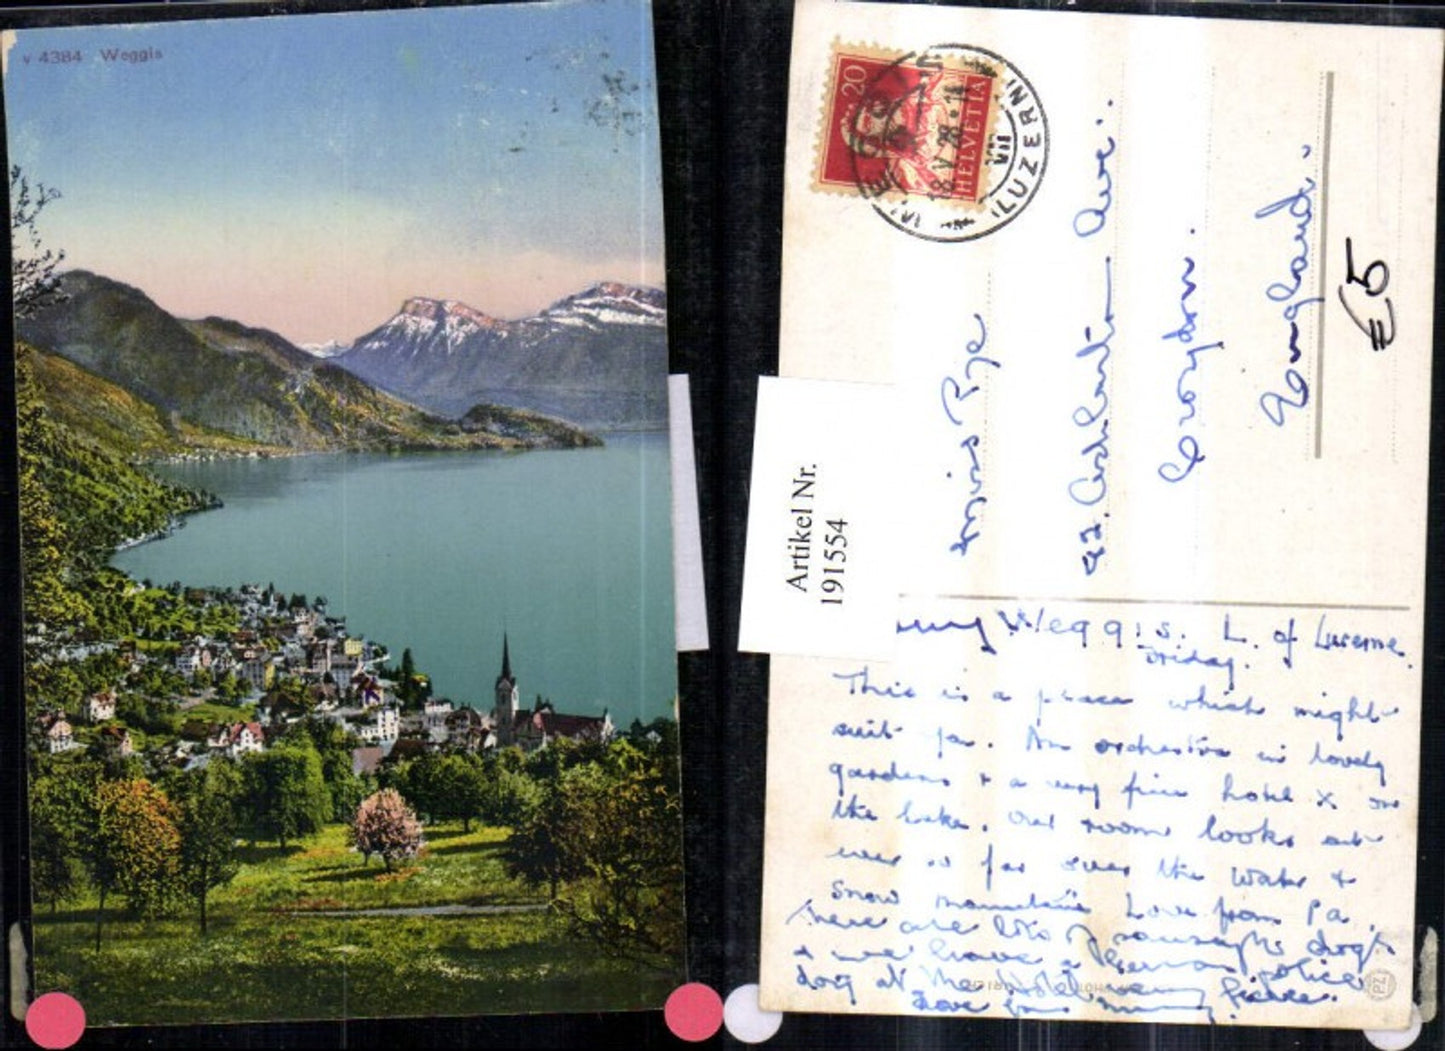 v 4384 Weggis
20
HELVETIA
18.V.28.11
(LUZERN)
€5
Artikel Nr.
191554
Miss Pye
92. Ashburton Ave.
Croydon.
England.
Weggis. L. of Lucerne.
Friday.
This is a place which might
suit you. An orchestra in lovely
gardens & a very fine hotel x on
the lake. Our room looks out
ever so far over the water &
snow mountains Love from Pa.
There are lots of sausage dogs
& we have a German police
dog at the Hotel very fierce.
Love from
PZ